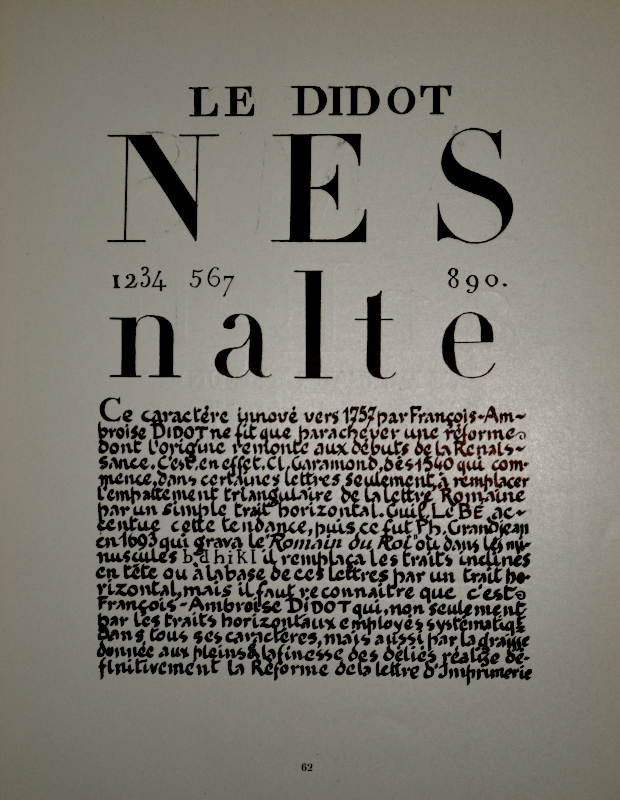 LE DIDOT
N E S
1234 567 890.
n a l t e
Ce caractére innové vers 1757 par François-Am-
broise DIDOT ne fit que parachever une réforme
dont l'origine remonte aux débuts de la Renais-
sance. C'est, en effet, Cl. Garamond, dès 1540 qui com-
mence, dans certaines lettres seulement, à remplacer
l'empattement triangulaire de la lettre Romaine
par un simple trait horizontal. Guil. LE BÉ ac-
centue cette tendance, puis ce fut Ph. Grandjean
en 1693 qui grava le "Romain du Roi" où dans les mi-
nuscules b d h i k l il remplaça les traits inclinés
en tête ou à la base de ces lettres par un trait ho-
rizontal, mais il faut reconnaitre que c'est
François-Ambroise DIDOT qui, non seulement
par les traits horizontaux employés systématiqt
dans tous ses caractères, mais aussi par la graisse
donnée aux pleins & la finesse des déliés réalize dé-
finitivement la Réforme de la lettre d'Imprimerie
62